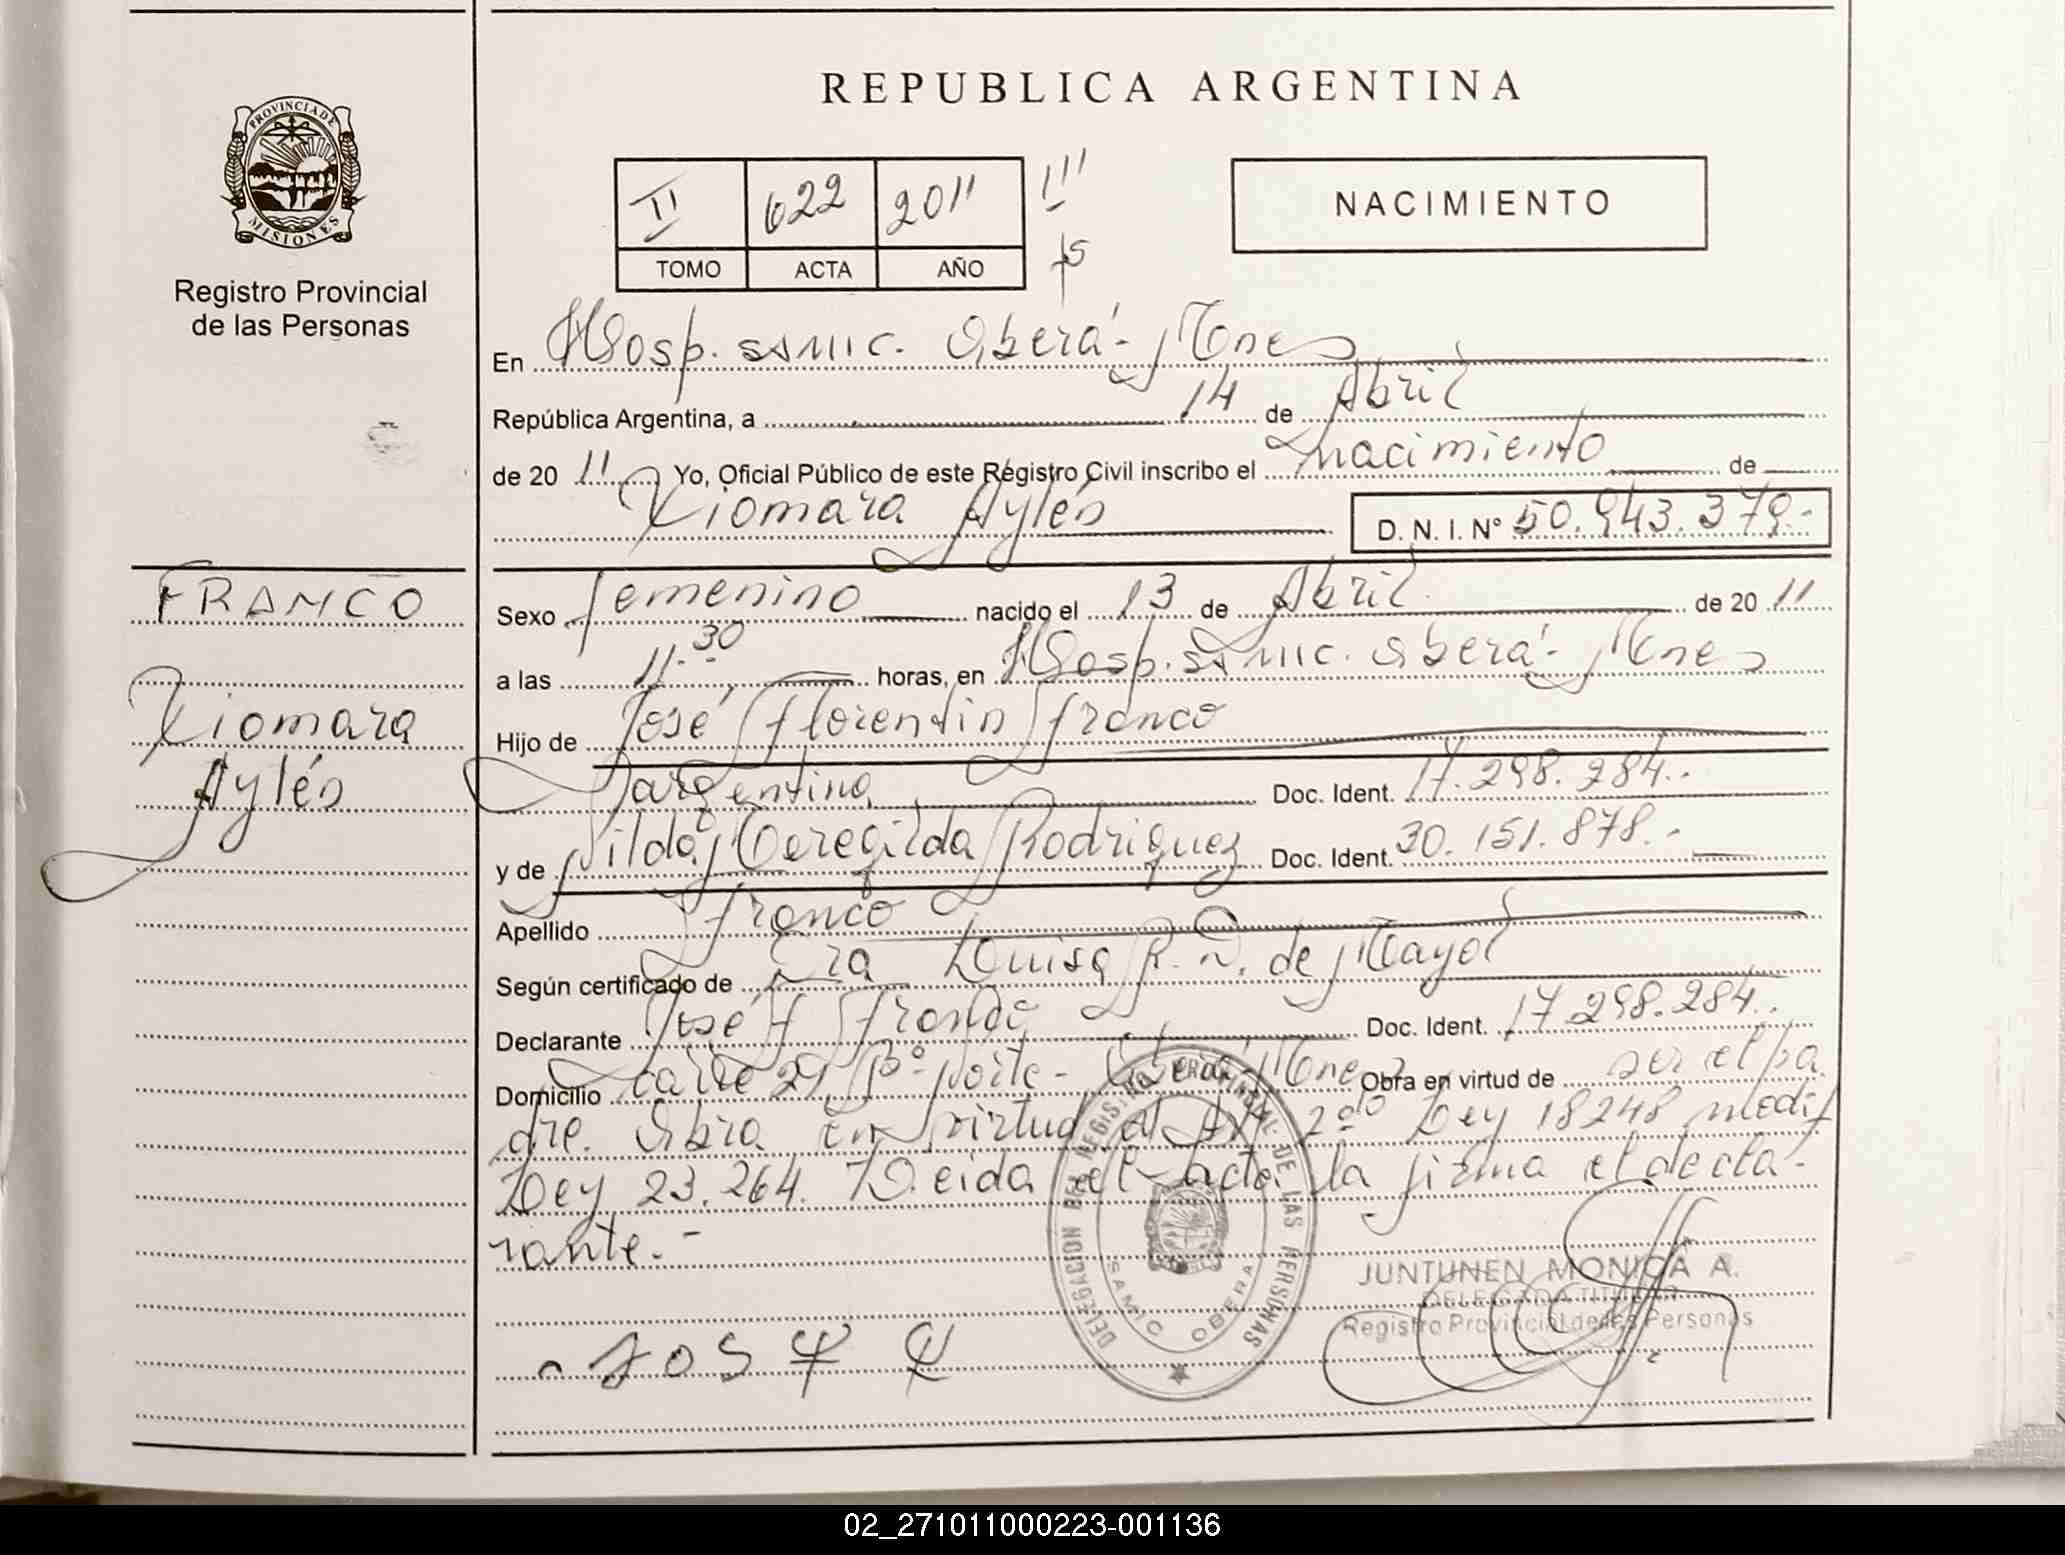 REPUBLICA ARGENTINA
PROVINCIA DE
MISIONES
Registro Provincial
de las Personas
II 622 2011 III
TOMO ACTA AÑO
NACIMIENTO
En Hosp. SAMIC. Oberá- Mnes
República Argentina, a 14 de Abril
de 20 11 Yo, Oficial Público de este Registro Civil inscribo el nacimiento de
Xiomara Aylén D. N. I. Nº 50.943.379.-
FRANCO
Xiomara
Aylén
Sexo femenino nacido el 13 de Abril de 20 11
a las 11.30 horas, en Hosp. SAMIC. Oberá- Mnes
Hijo de José Florentin Franco
argentina Doc. Ident. 17.298.284.-
y de Nilda Meregilda Rodriguez Doc. Ident. 30.151.878.-
Apellido Franco
Según certificado de Dra Luisa R. D. de Mayol
Declarante José F Franco Doc. Ident. 17.298.284.-
Domicilio calle 21 Bº norte- Oberá- Mnes Obra en virtud de ser el pa
dre. Obra en virtud al Art 2do Ley 18248 modif
Ley 23.264. Leida el acta la firma el decla-
rante.-
JOS
DELEGACION DEL REGISTRO PROVINCIAL DE LAS PERSONAS
SAMIC OBERA
JUNTUNEN MONICA A.
DELEGADA TITULAR
Registro Provincial de las Personas
02_271011000223-001136